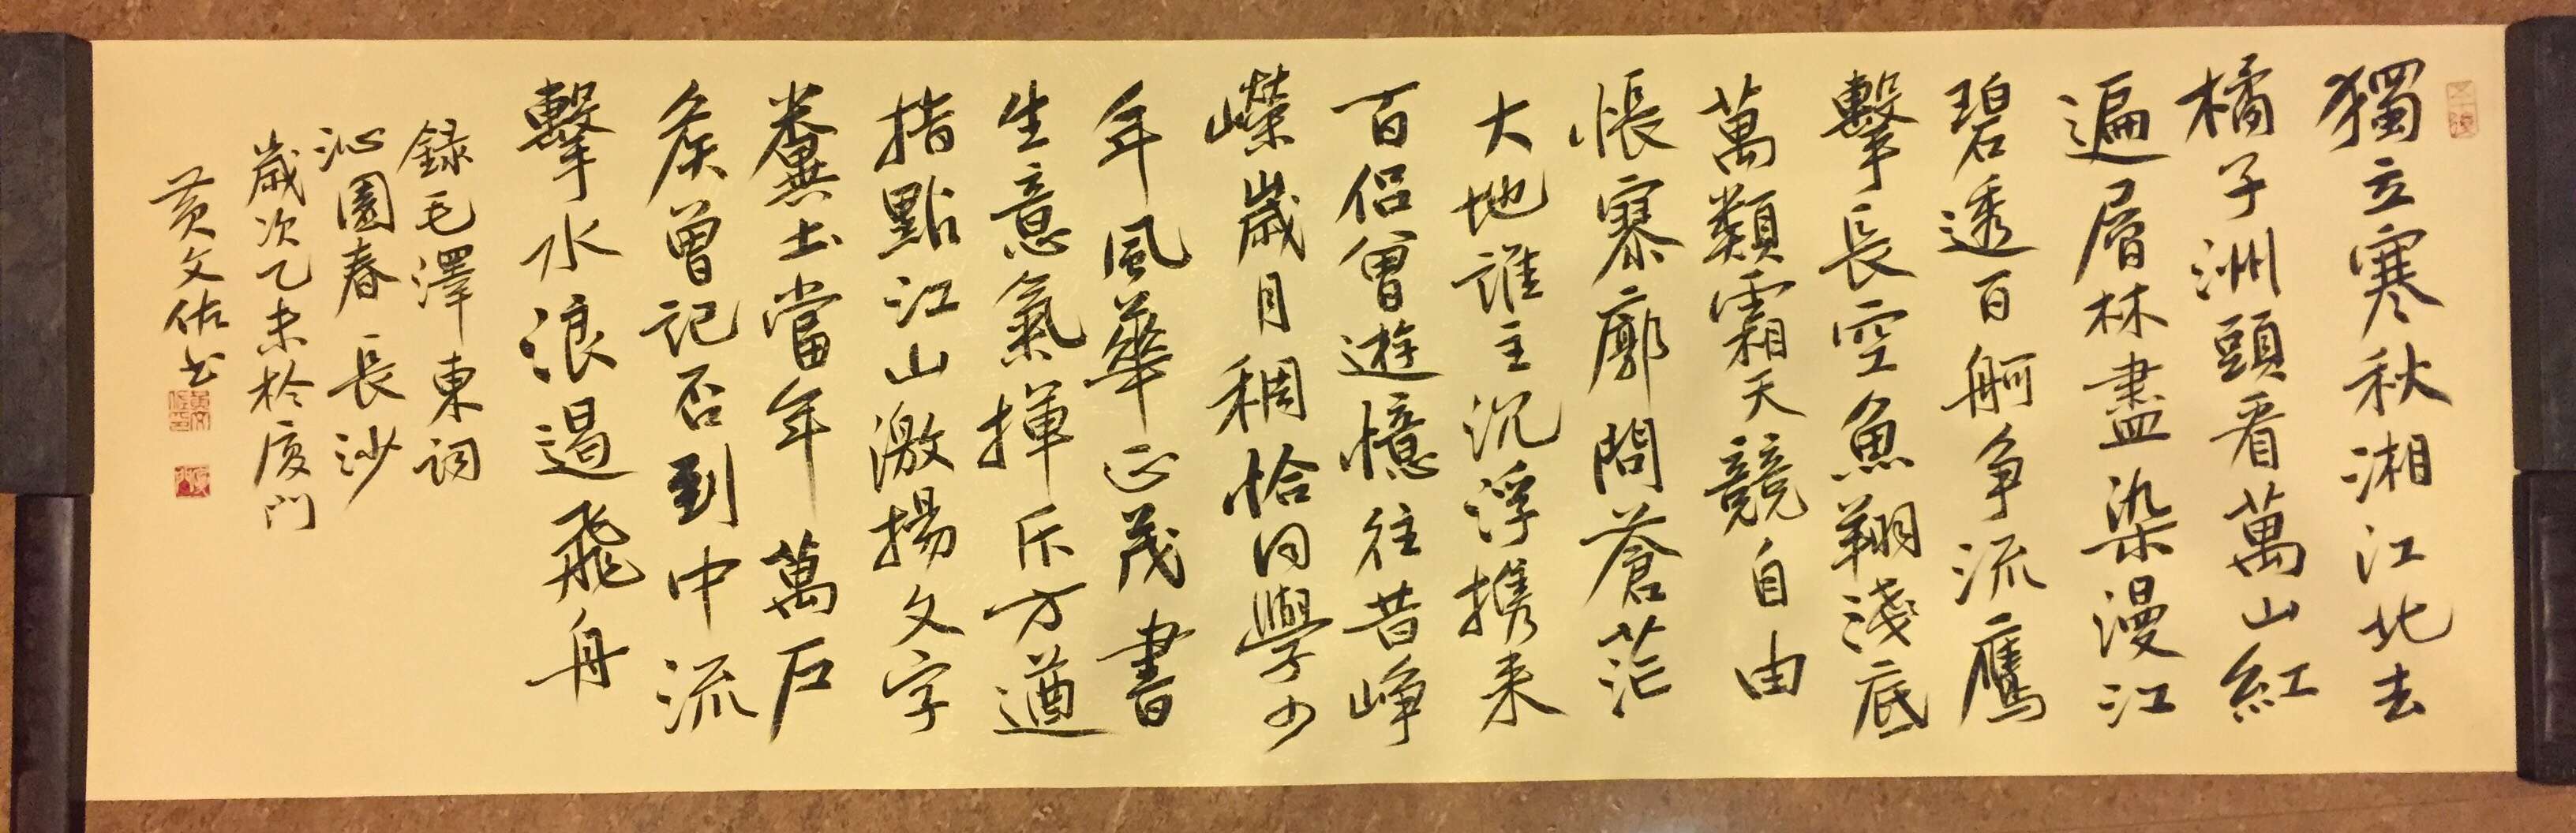 獨立寒秋湘江北去
橘子洲頭看萬山紅
遍層林盡染漫江
碧透百舸争流鷹
擊長空魚翔淺底
萬類霜天競自由
悵寥廓問蒼茫
大地誰主沉浮携来
百侣曾遊憶往昔崢
嶸歲月稠恰同學少
年風華正茂書
生意氣揮斥方遒
指點江山激揚文字
糞土當年萬户
矦曾記否到中流
擊水浪遏飛舟
録毛澤東詞
沁園春長沙
歲次乙未於厦门
黄文佑书